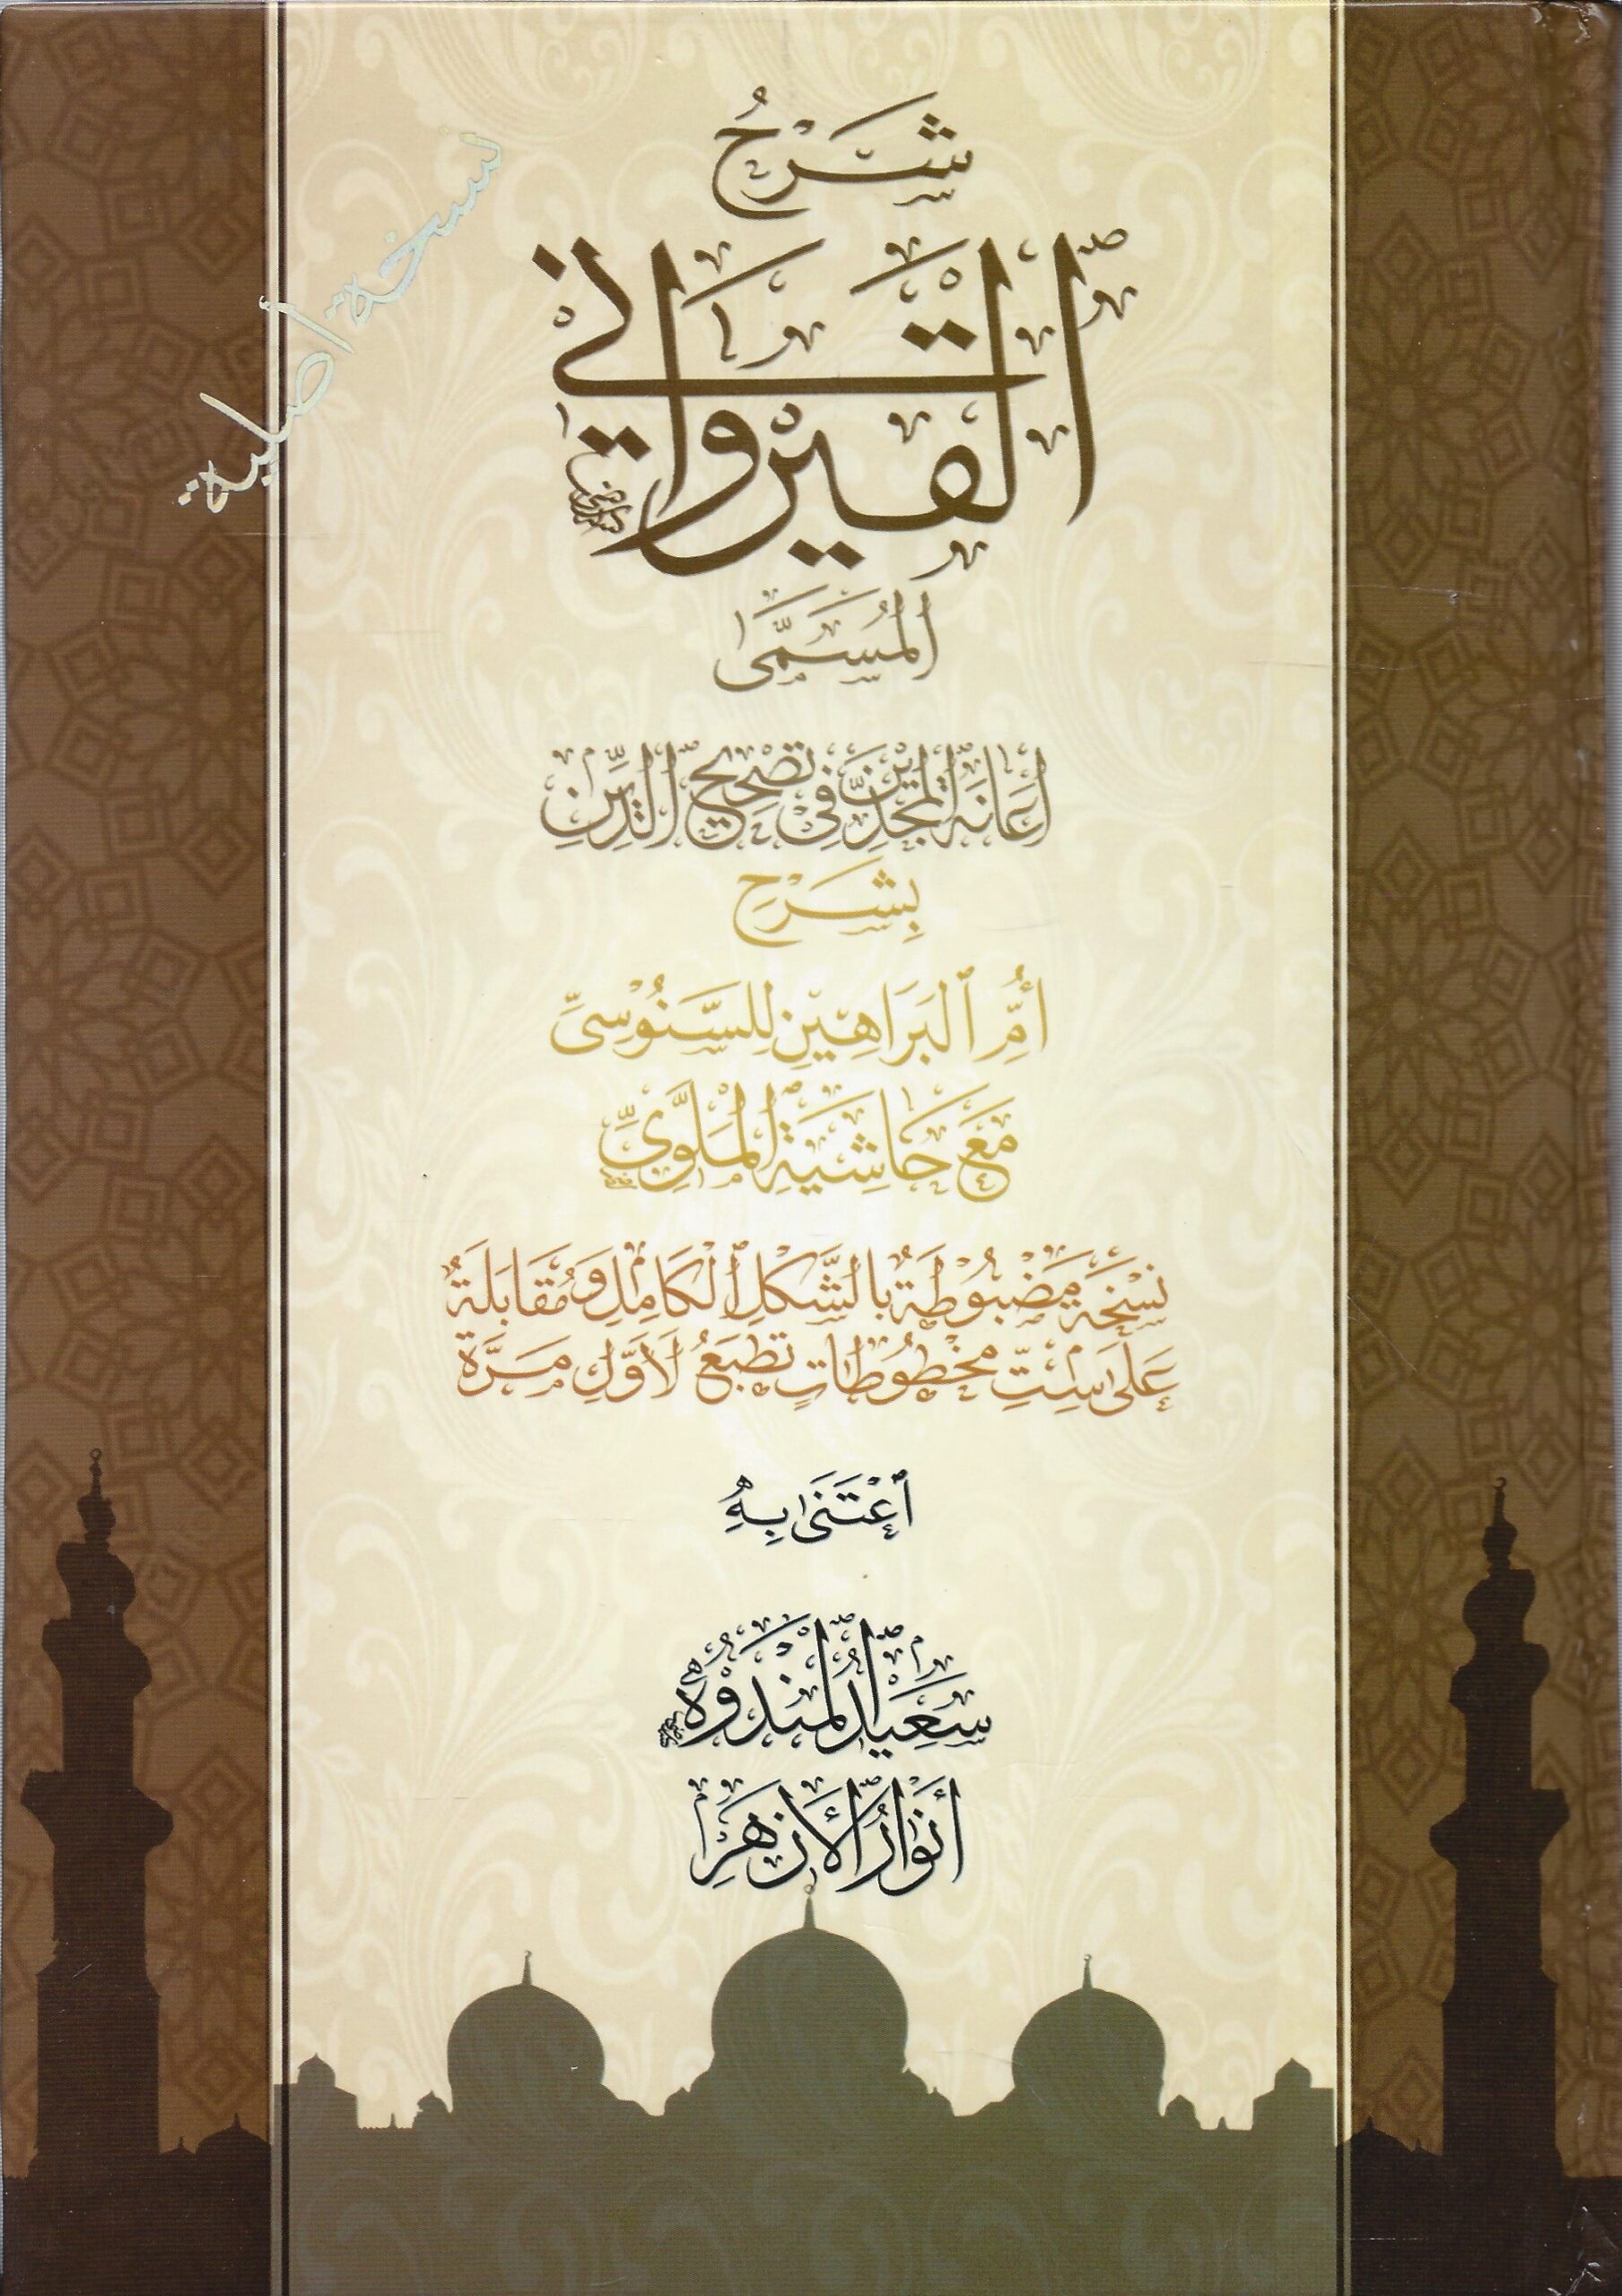 شَرْحُ
القَيْرَوَانِيّ
المُسَمَّى
إِعَانَةَ الْمُجِدِّينَ فِي تَصْحِيحِ الدِّينِ
بِشَرْحِ
أُمِّ ٱلْبَرَاهِينِ لِلسَّنُوْسِيِّ
مَعَ حَاشِيَةِ الْمَلَّوِيِّ
نُسْخَةٌ مَضْبُوْطَةٌ بِالشَّكْلِ ٱلْكَامِلِ وَمُقَابَلَةٌ
عَلَى سِتِّ مَخْطُوْطَاتٍ تُطْبَعُ لِأَوَّلِ مَرَّةٍ
ٱعْتَنَى بِهِ
سَعِيْدُ الْمَنْدُوْهُ
أَنْوَارُ الْأَزْهَرِ
نسخة أصلية